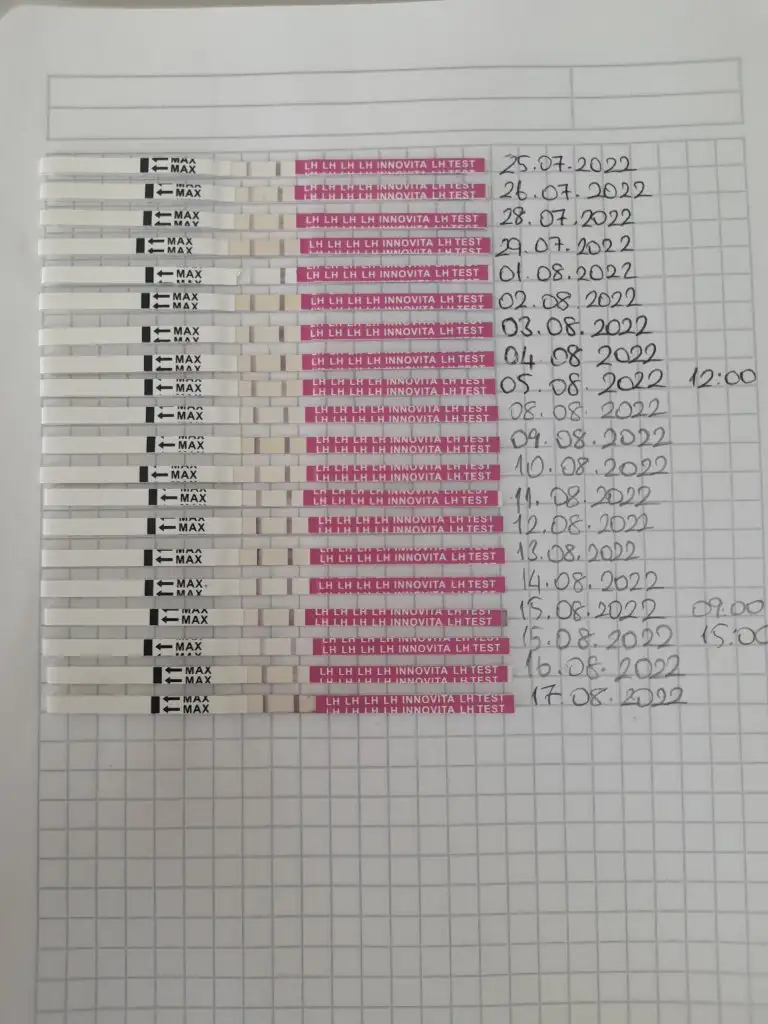 MAX MAX LH LH LH LH INNOVITA LH TEST 25.07.2022
MAX LH LH LH LH INNOVITA LH TEST 26.07.2022
MAX MAX LH LH LH LH INNOVITA LH TEST 28.07.2022
MAX MAX LH LH LH LH INNOVITA LH TEST 29.07.2022
MAX LH LH LH LH INNOVITA LH TEST 01.08.2022
MAX MAX LH LH LH LH INNOVITA LH TEST 02.08.2022
MAX MAX LH LH LH LH INNOVITA LH TEST 03.08.2022
MAX MAX LH LH LH LH INNOVITA LH TEST 04.08 2022
MAX MAX LH LH LH LH INNOVITA LH TEST 05.08.2022 12:00
MAX LH LH LH LH INNOVITA LH TEST 08.08.2022
MAX MAX LH LH LH LH INNOVITA LH TEST 09.08.2022
MAX MAX LH LH LH LH INNOVITA LH TEST 10.08.2022
MAX MAX LH LH LH LH INNOVITA LH TEST 11.08.2022
MAX MAX LH LH LH LH INNOVITA LH TEST 12.08.2022
MAX MAX LH LH LH LH INNOVITA LH TEST 13.08.2022
MAX MAX LH LH LH LH INNOVITA LH TEST 14.08.2022
MAX MAX LH LH LH LH INNOVITA LH TEST 15.08.2022 09.00
MAX LH LH LH LH INNOVITA LH TEST 15.08.2022 15:00
MAX MAX LH LH LH LH INNOVITA LH TEST 16.08.2022
MAX MAX LH LH LH LH INNOVITA LH TEST 17.08.2022